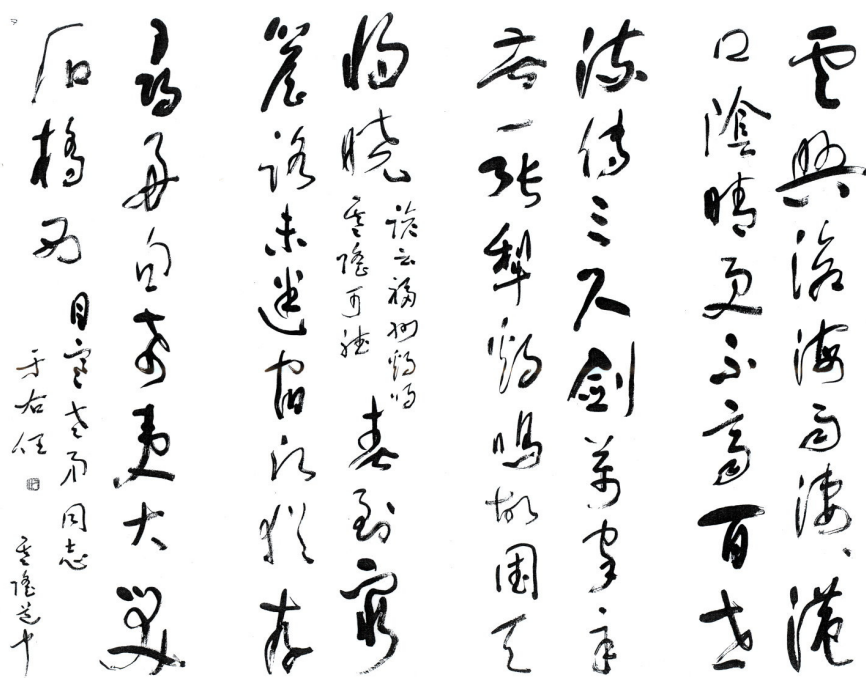 雲興滄海雨淒、港
口陰晴更不齊百世
流傳三尺劍萬家辛
苦一張犁雞鳴故國天
將曉
諺云福州雞鳴
基隆可聽
春到窮
簷路未迷宿願猶存
尋好句希夷大笑
石橋西
目寒老弟同志
于右任
基隆道中